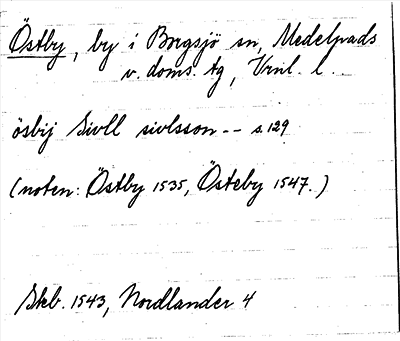 Östby, by i Borgsjö sn, Medelpads
v. doms. tg, Vrnl. l.
ösbij Sivll sivlsson -- s. 129
(noten: Östby 1535, Östeby 1547.)
Skb. 1543, Nordlander 4